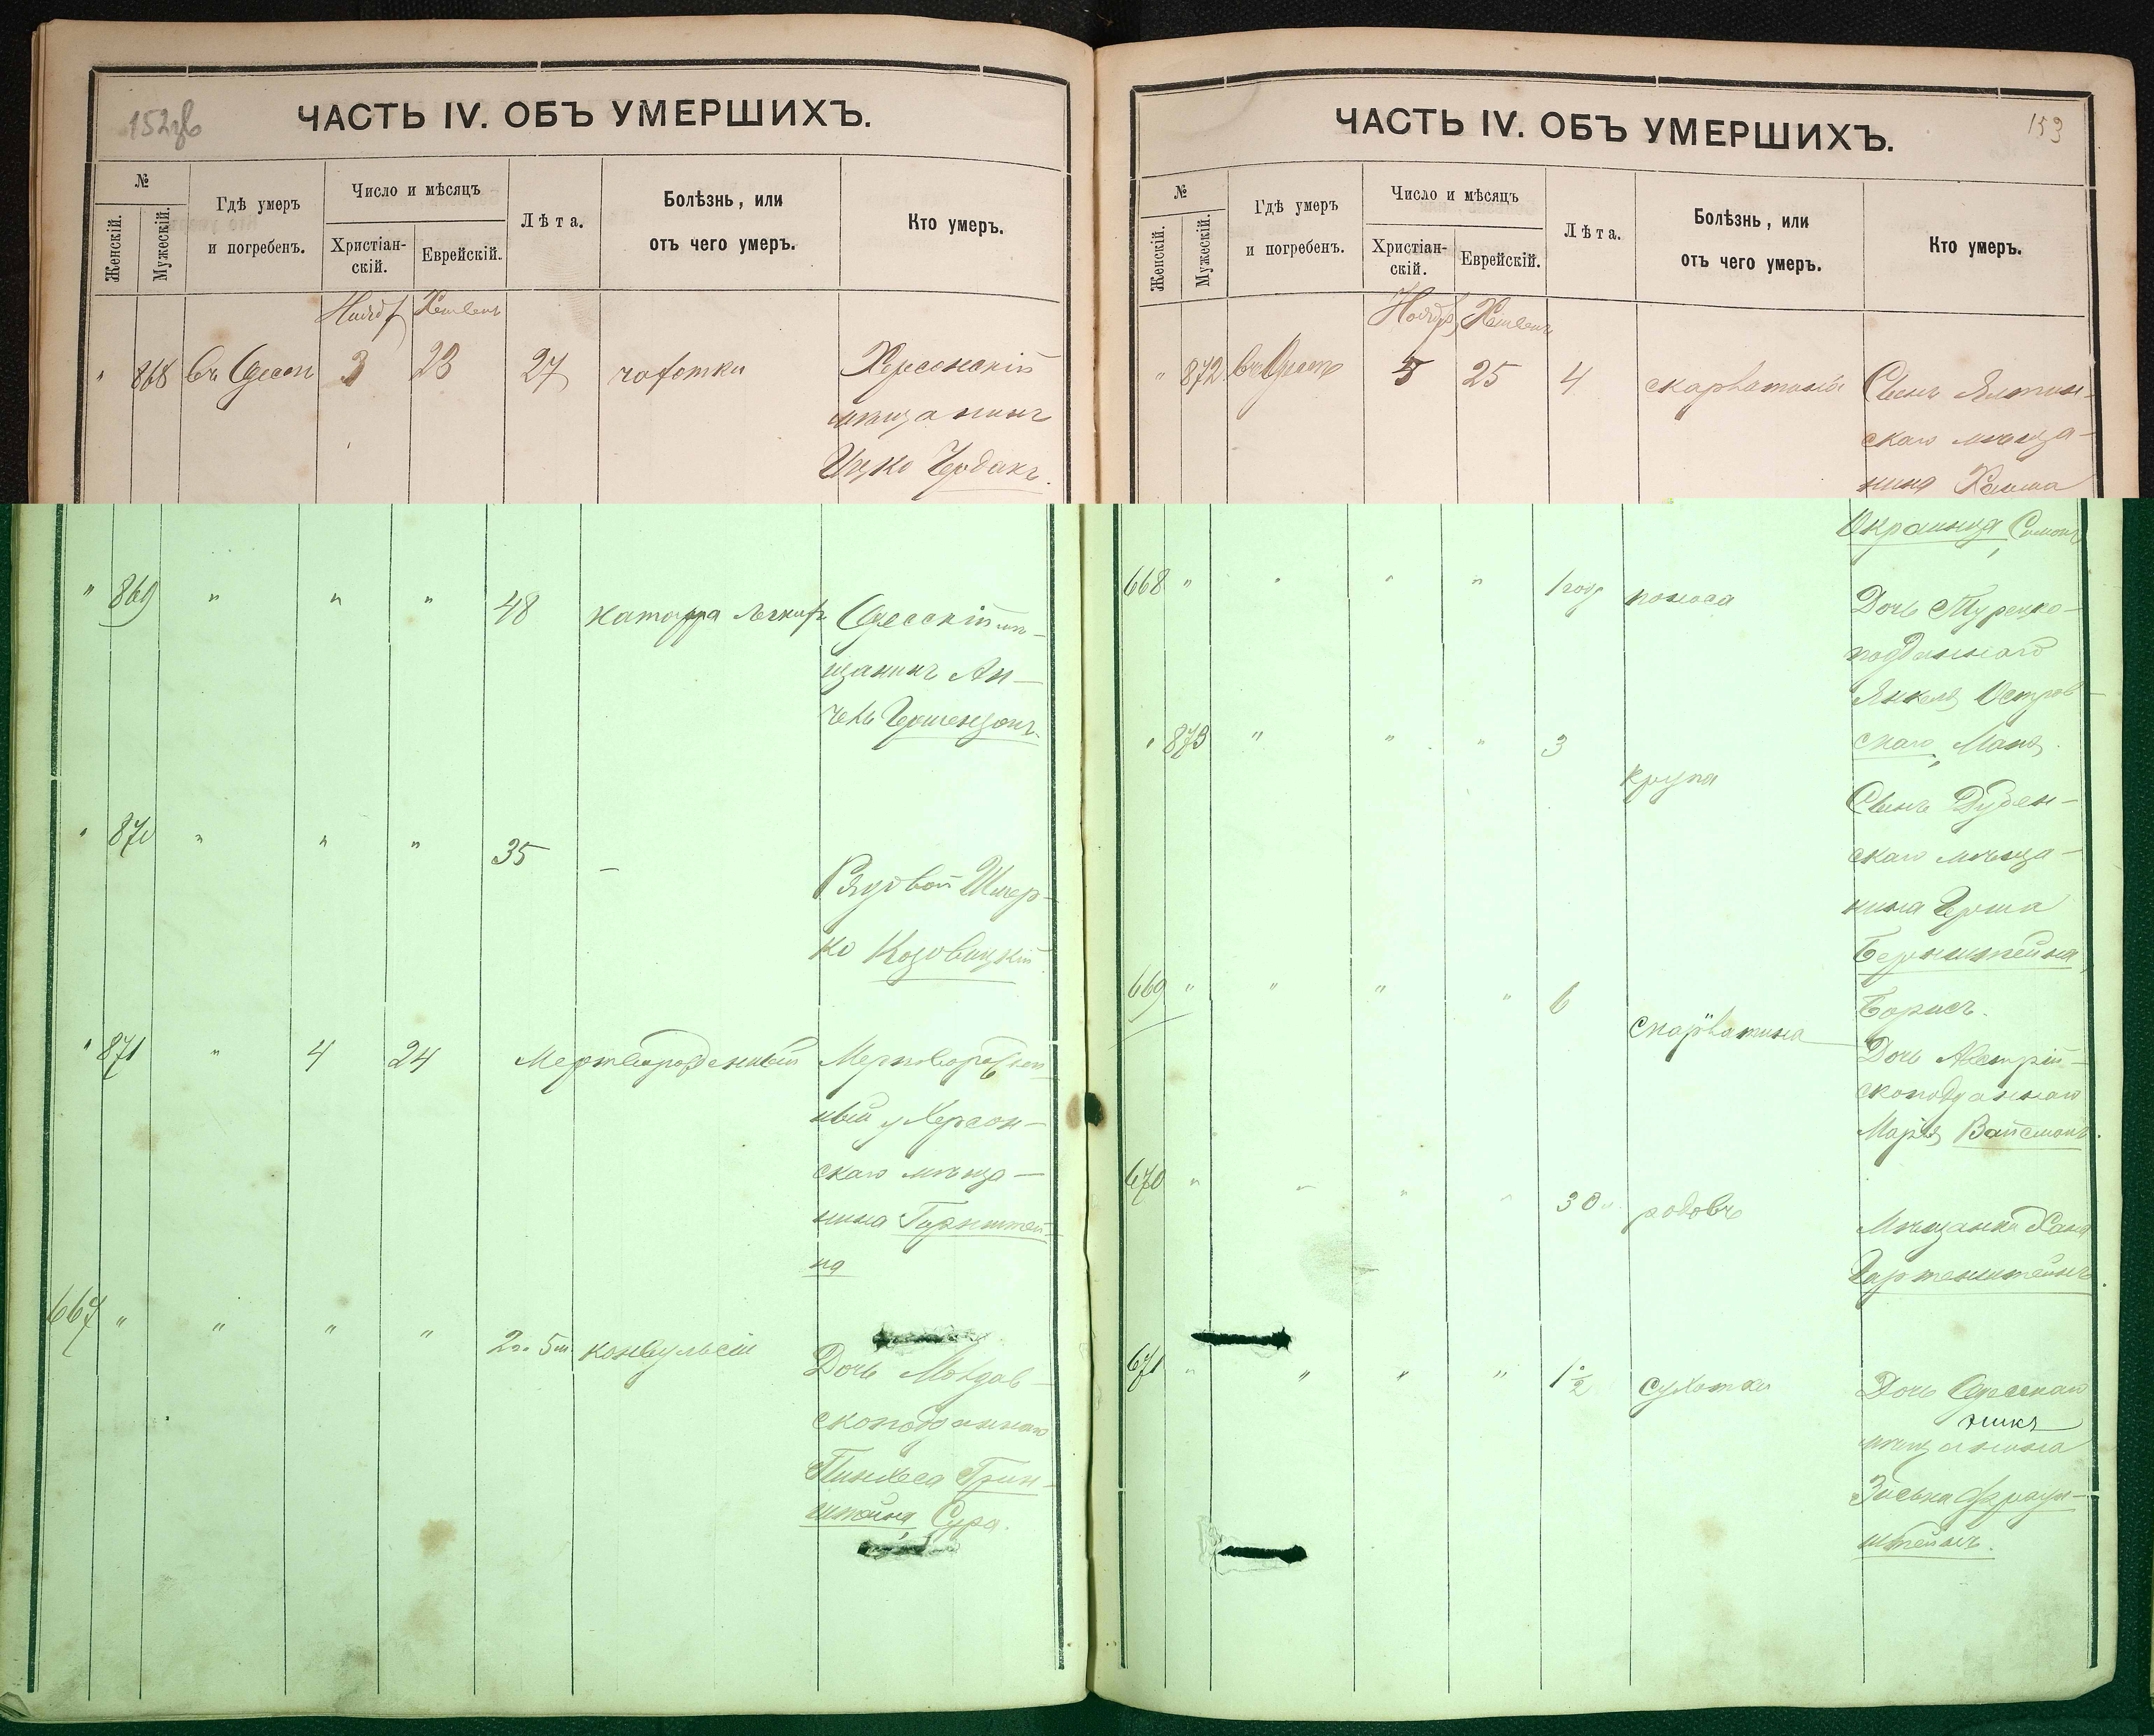 152
ЧАСТЬ IV. ОБЪ УМЕРШИХЪ.
№
Женскій.
Мужескій.
Гдѣ умеръ
и погребенъ.
Число и мѣсяцъ
Христіан-
скій.
Еврейскій.
Лѣта.
Болѣзнь, или
отъ чего умеръ.
Кто умеръ.
" 868 въ Одессѣ 3 23 27 чахотки Херсонскій
мѣщанинъ
Ицко
" 869 " " " 48 Одесскій мѣ-
щанинъ Ан-
чель Гершензонъ.
" 870 " " " 35 — Рядовой Шмер-
ко Козовицкій
" 871 " 4 24 Мертворожденный Мертворожден-
ный у Херсон-
скаго мѣща-
нина
на
667 " " " " 2 г. 5 м. конвульсіи Дочь Молдав-
скоподданнаго
Пинхеса Грин-
штейна, Сура.
153
ЧАСТЬ IV. ОБЪ УМЕРШИХЪ.
№
Женскій.
Мужескій.
Гдѣ умеръ
и погребенъ.
Число и мѣсяцъ
Христіан-
скій.
Еврейскій.
Лѣта.
Болѣзнь, или
отъ чего умеръ.
Кто умеръ.
" 872 въ Одессѣ 5 25 4 скарлатины Сынъ Ялтин-
скаго мѣща-
нина Хаима
Украинца
668 " " " " 1 год поноса Дочь Турецко-
подданнаго
Янкеля Остров-
скаго, Маня.
" 873 " " " 3 крупа Сынъ Дубен-
скаго мѣща-
нина Герша
Бернштейна,
Борисъ.
669 " " " " 6 скарлатина Дочь Австрій-
скоподданнаго
Марія Вайсманъ.
670 " " " " 30 родовъ Мѣщанка Хана
Гартенштейнъ.
671 " " " " 1½ сухотки Дочь Одесскаго
мѣщанина
штейнъ.